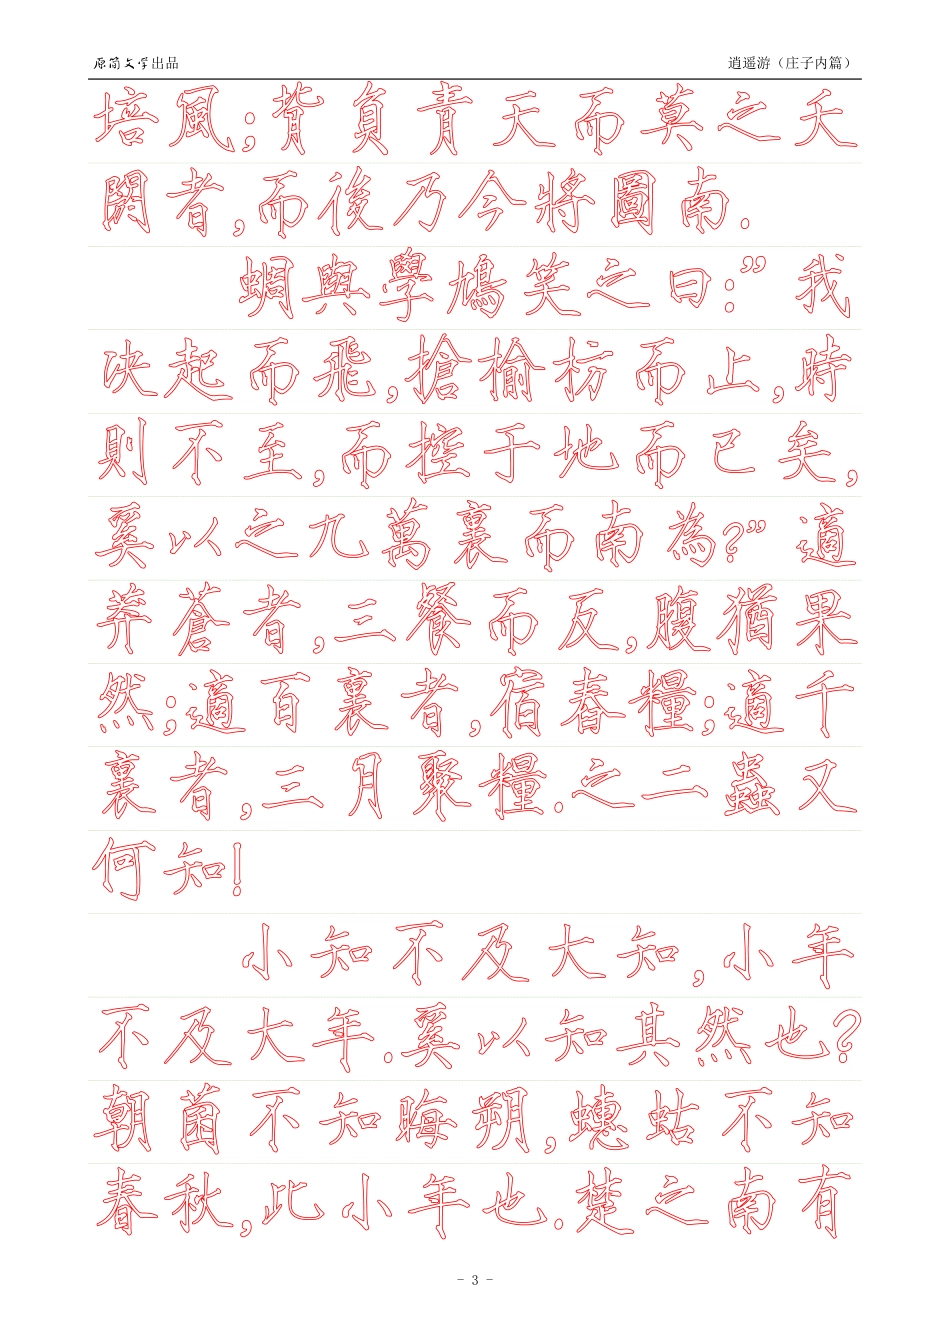 原简文学出品 逍遥游（庄子内篇）
培風;背負青天而莫之夭
閼者,而後乃今將圖南.
蜩與學鳩笑之曰:”我
决起而飛,搶榆枋而止,時
則不至,而控于地而已矣,
奚以之九萬裏而南為?”適
莽蒼者,三餐而反,腹猶果
然;適百裏者,宿舂糧;適千
裏者,三月聚糧.之二蟲又
何知!
小知不及大知,小年
不及大年.奚以知其然也?
朝菌不知晦朔,蟪蛄不知
春秋,此小年也.楚之南有
- 3 -